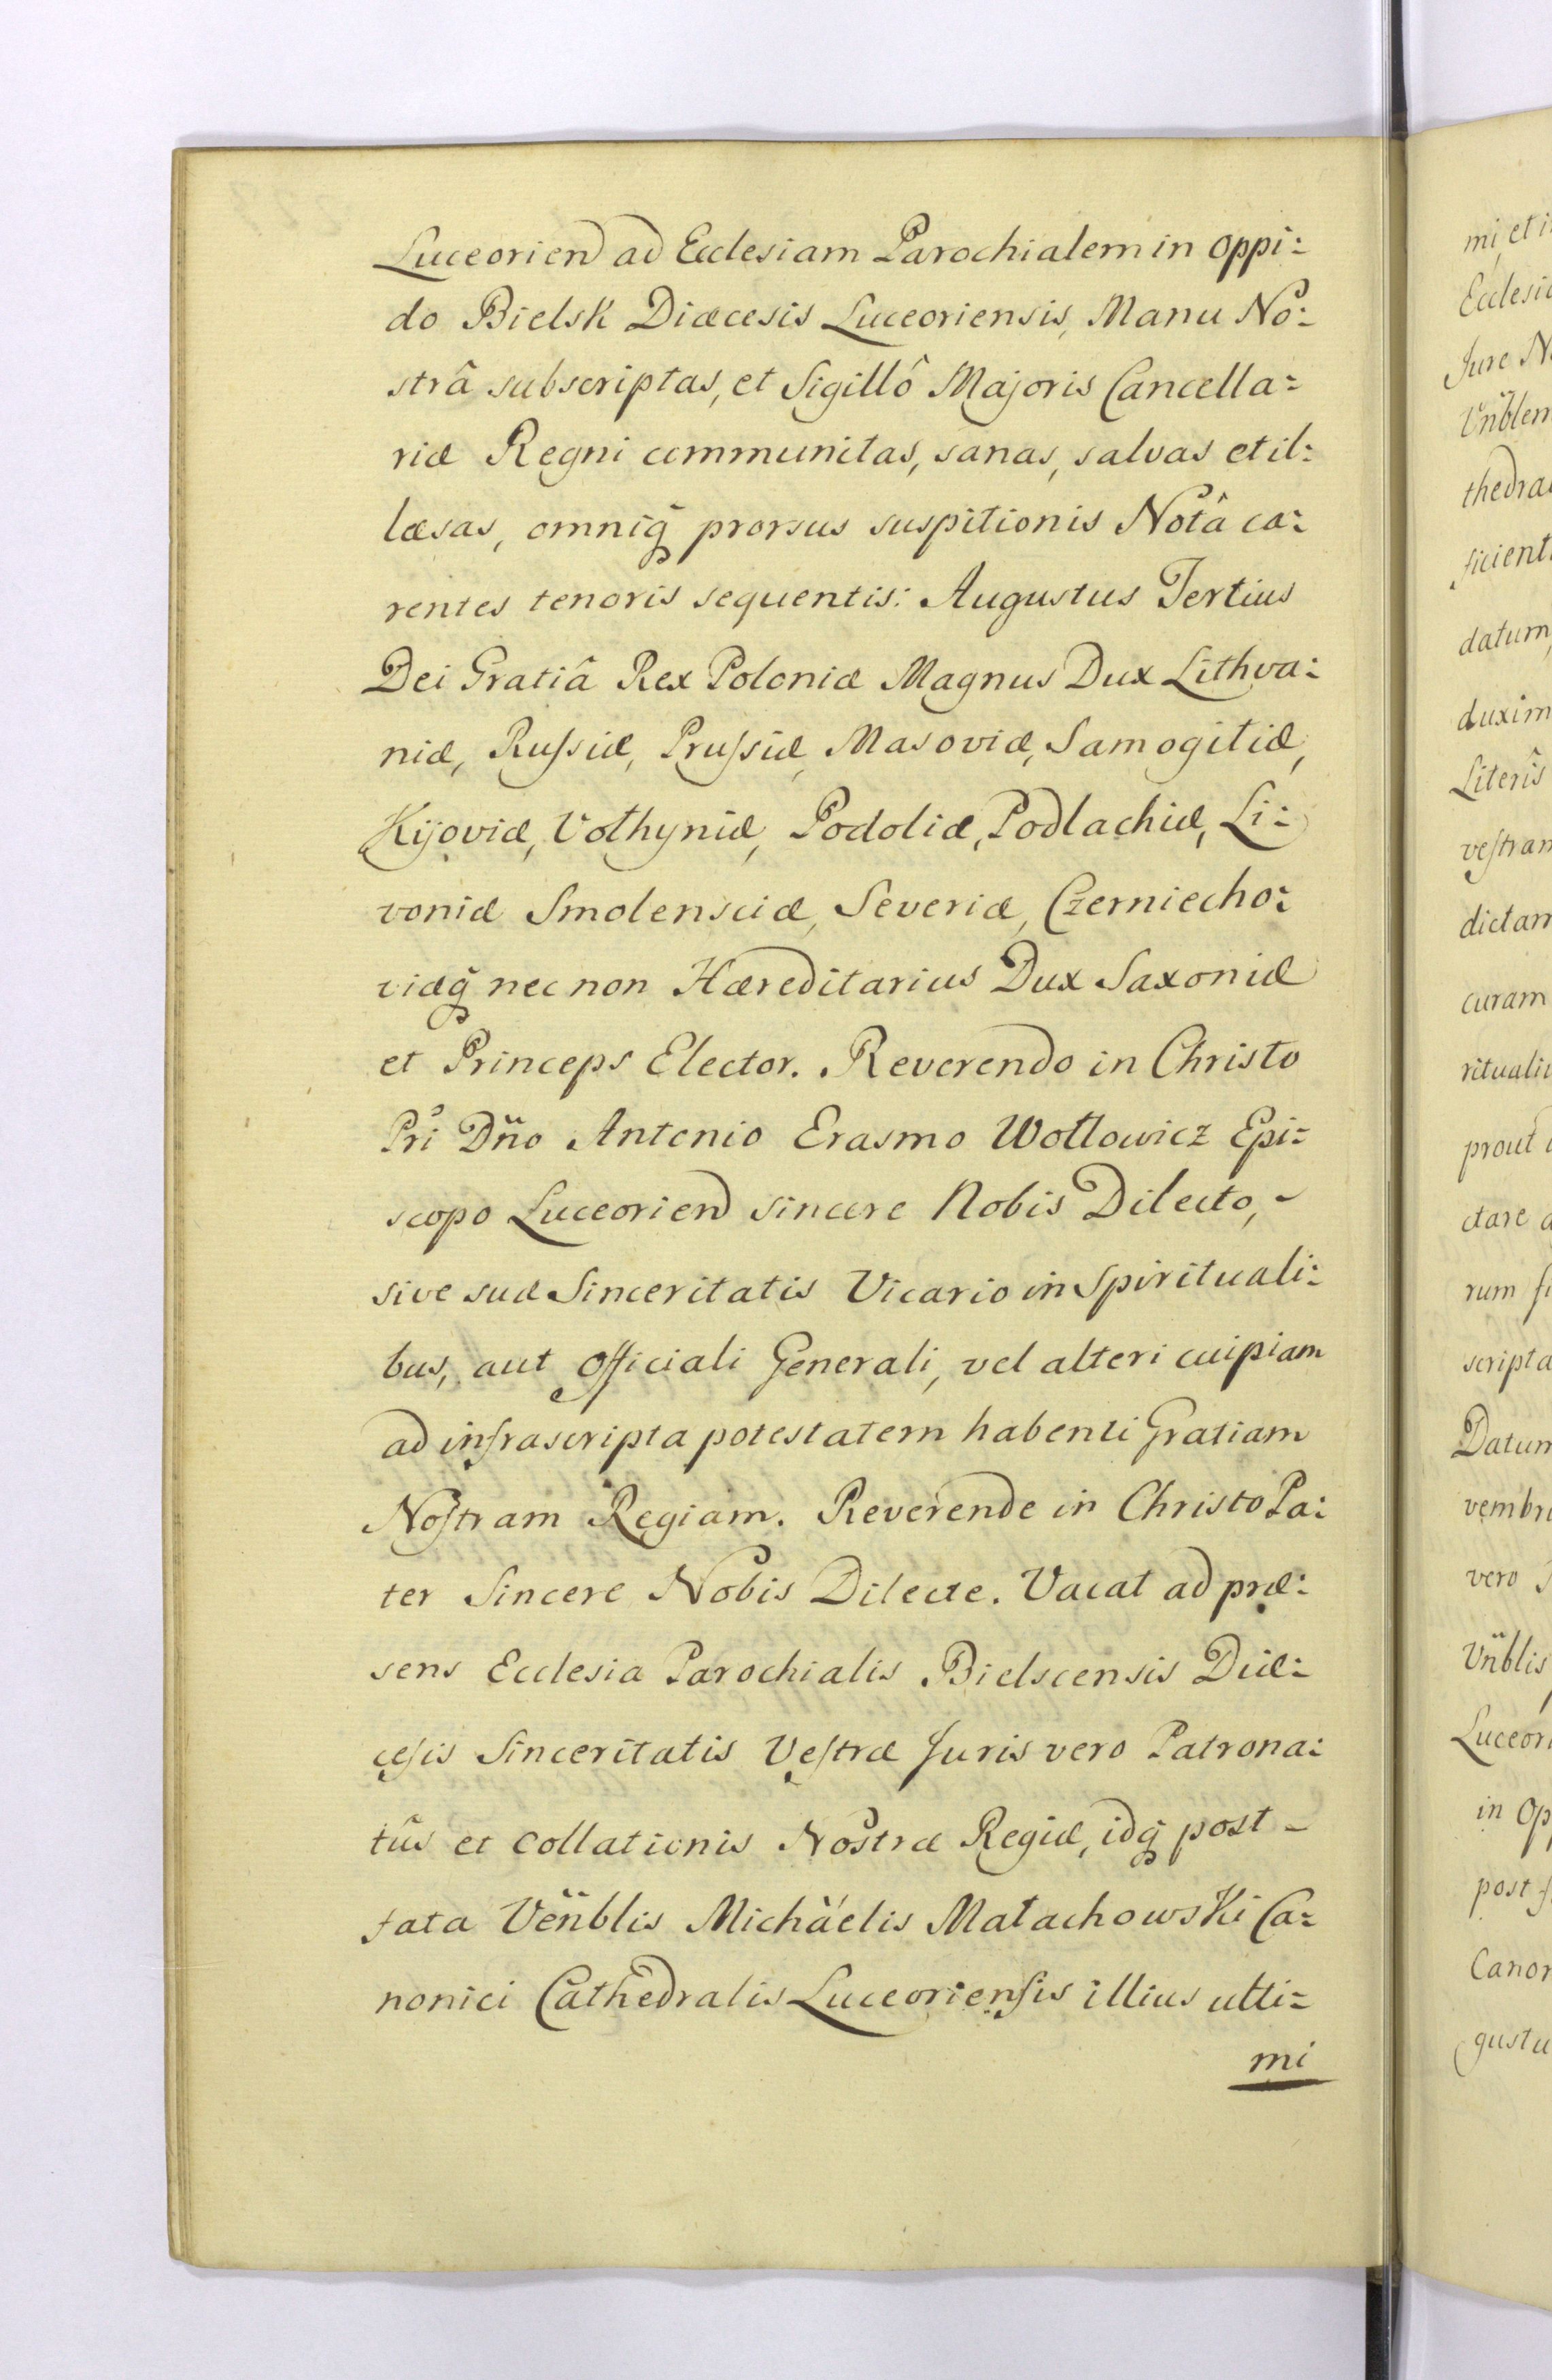 Luceorien ad Ecclesiam Parochialem in Oppi:
do Bielsk Diæcesis Luceoriensis, Manu No:
strâ subscriptas, et Sigillô Majoris Cancella:
riæ Regni communitas, sanas, salvas et il:
læsas, omniq̃ prorsus suspitionis Notâ ca:
rentes tenoris sequentis: Augustus Tertius
Dei Gratiâ Rex Poloniæ Magnus Dux Lithva:
niæ, Ruſsiæ, Pruſsiæ, Masoviæ, Samogitiæ,
Kijoviæ, Vołhyniæ, Podoliæ, Podlachiæ, Li:
voniæ Smolensciæ, Severiæ, Czerniecho:
viæq̃ nec non Hæreditarius Dux Saxoniæ
et Princeps Elector. Reverendo in Christo
Pri Dño Antonio Erasmo Wołłowicz Epi:
scopo Luceorien sincere Nobis Dilecto, -
sive suæ Sinceritatis Vicario in Spirituali:
bus, aut Officiali Generali, vel alteri cuipiam
ad infrascripta potestatem habenti Gratiam
Noſtram Regiam. Reverende in Christo Pa:
ter Sincere Nobis Dilecte. Vacat ad præ:
sens Ecclesia Parochialis Bielscensis Diæ:
ceſis Sinceritatis Veſtræ Juris vero Patrona:
tûs et Collationis Nostræ Regiæ, idq̃ post -
fata Venblis Michäelis Małachowski Ca:
nonici Cathedralis Luceorienſis illius ulti:
mi
mi, et i
Ecclesi
Jure N
Vnblem
thedra
ficient
datum,
duxim
Literis
veſtram
dictam
curam
rituali
prout
ctare
rum
scripta
Datum
vembri
vero
Vnblis
Luceori
in Op
post
Canon
gustu